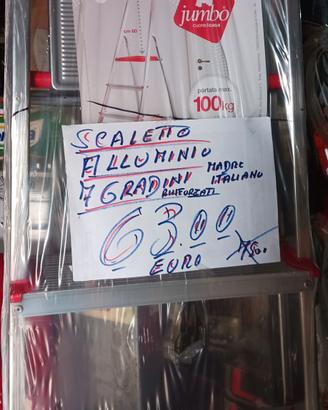 jumbo
cuore&casa
cm 60
portata max.
100kg
SCALETTO
ALLUMINIO
7 GRADINI MADRE
RINFORZATI ITALIANO
63.00
EURO 75.